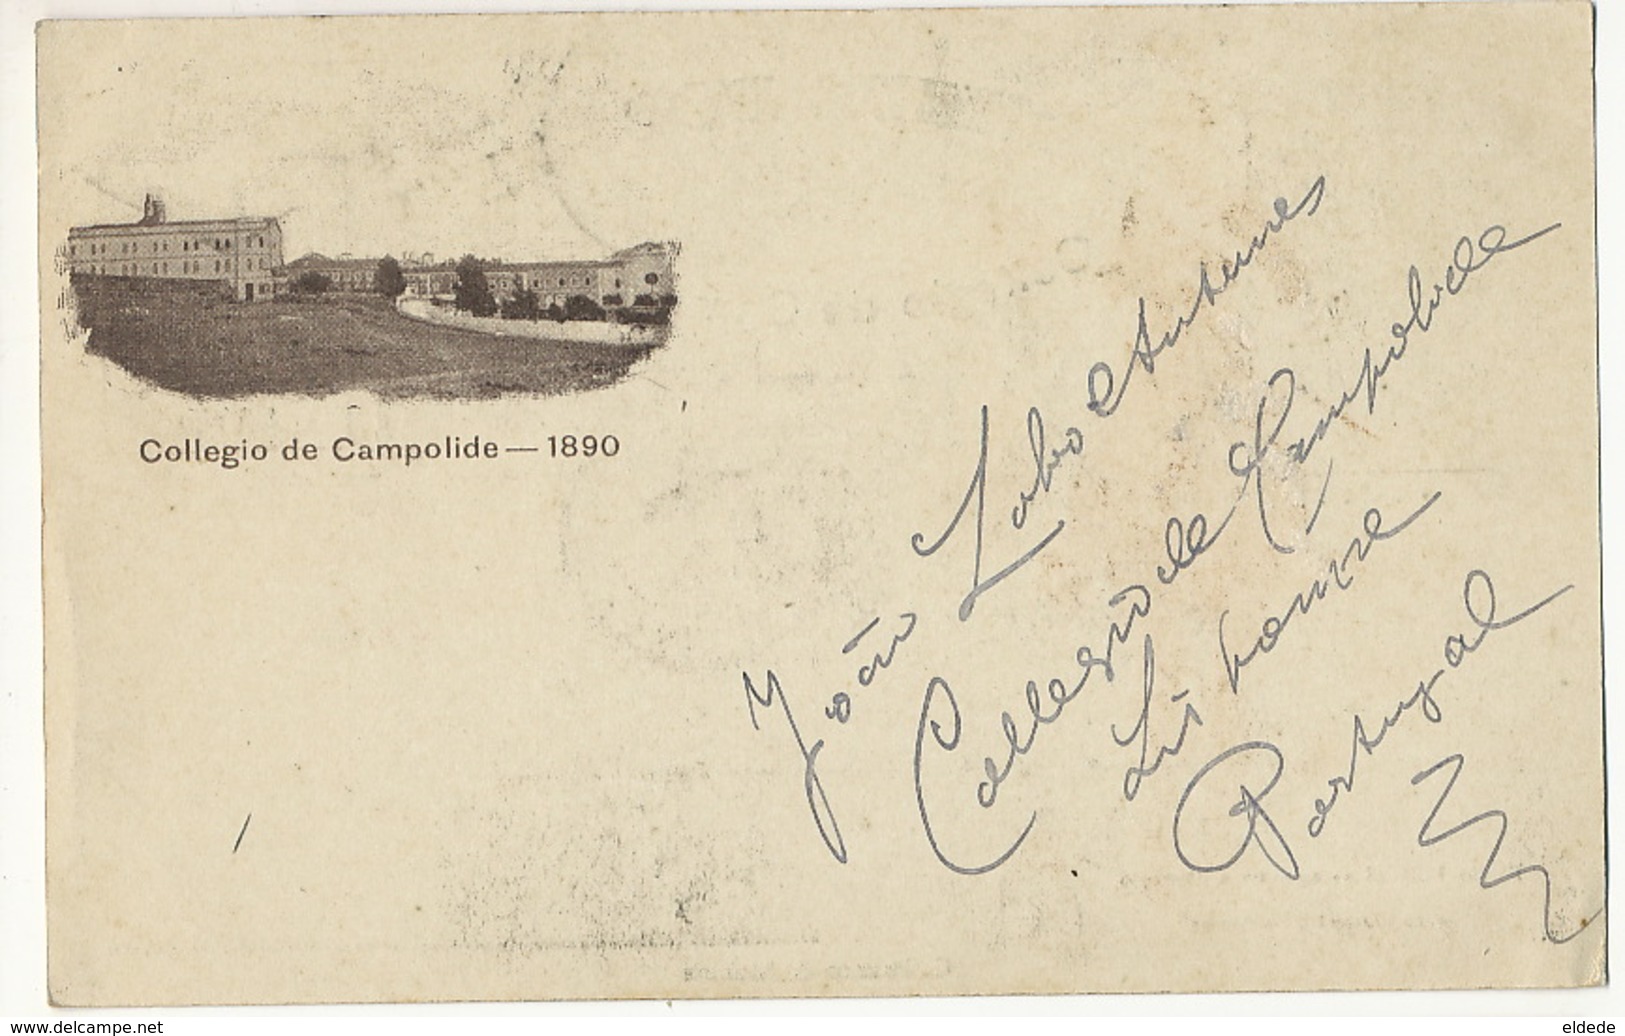 Collegio de Campolide — 1890
João Lobo Antunes
Collegio de Campolide
Lisbonne
Portugal
www.delcampe.net
eldede